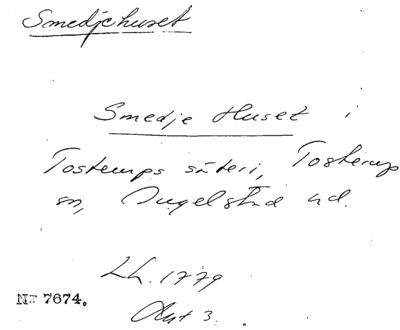 Smedjehuset
Smedje Huset i
Tosterups säteri, Tosterup
sn, Ingelstad hd.
Lh. 1779
Akt 3.
Nr 7674.